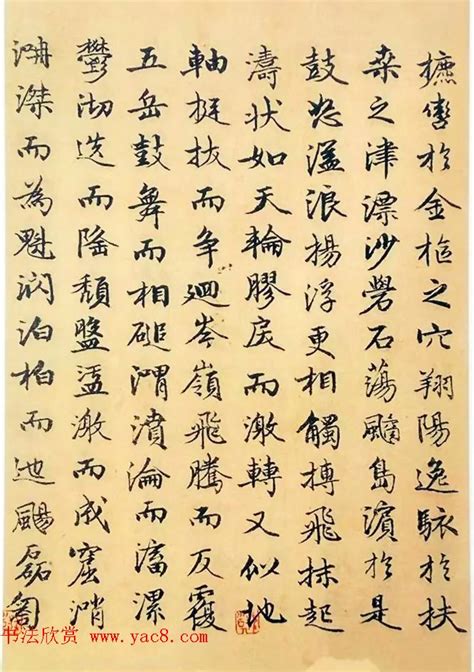 轡於金樞之穴翔陽逸駭於扶
桑之津漂沙礐石蕩島濱於是
鼓怒溢浪揚浮更相觸搏飛沫起
濤状如天輪膠戾而激轉又似地
軸挺拔而争迴岑嶺飛騰而反覆
五岳鼓舞而相磓渭濆淪而滀漯
鬱沏迭而隆頹盤盓激而成窟
滐而為魁泊柏而迆颺磊匒
书法欣赏 www.yac8.com